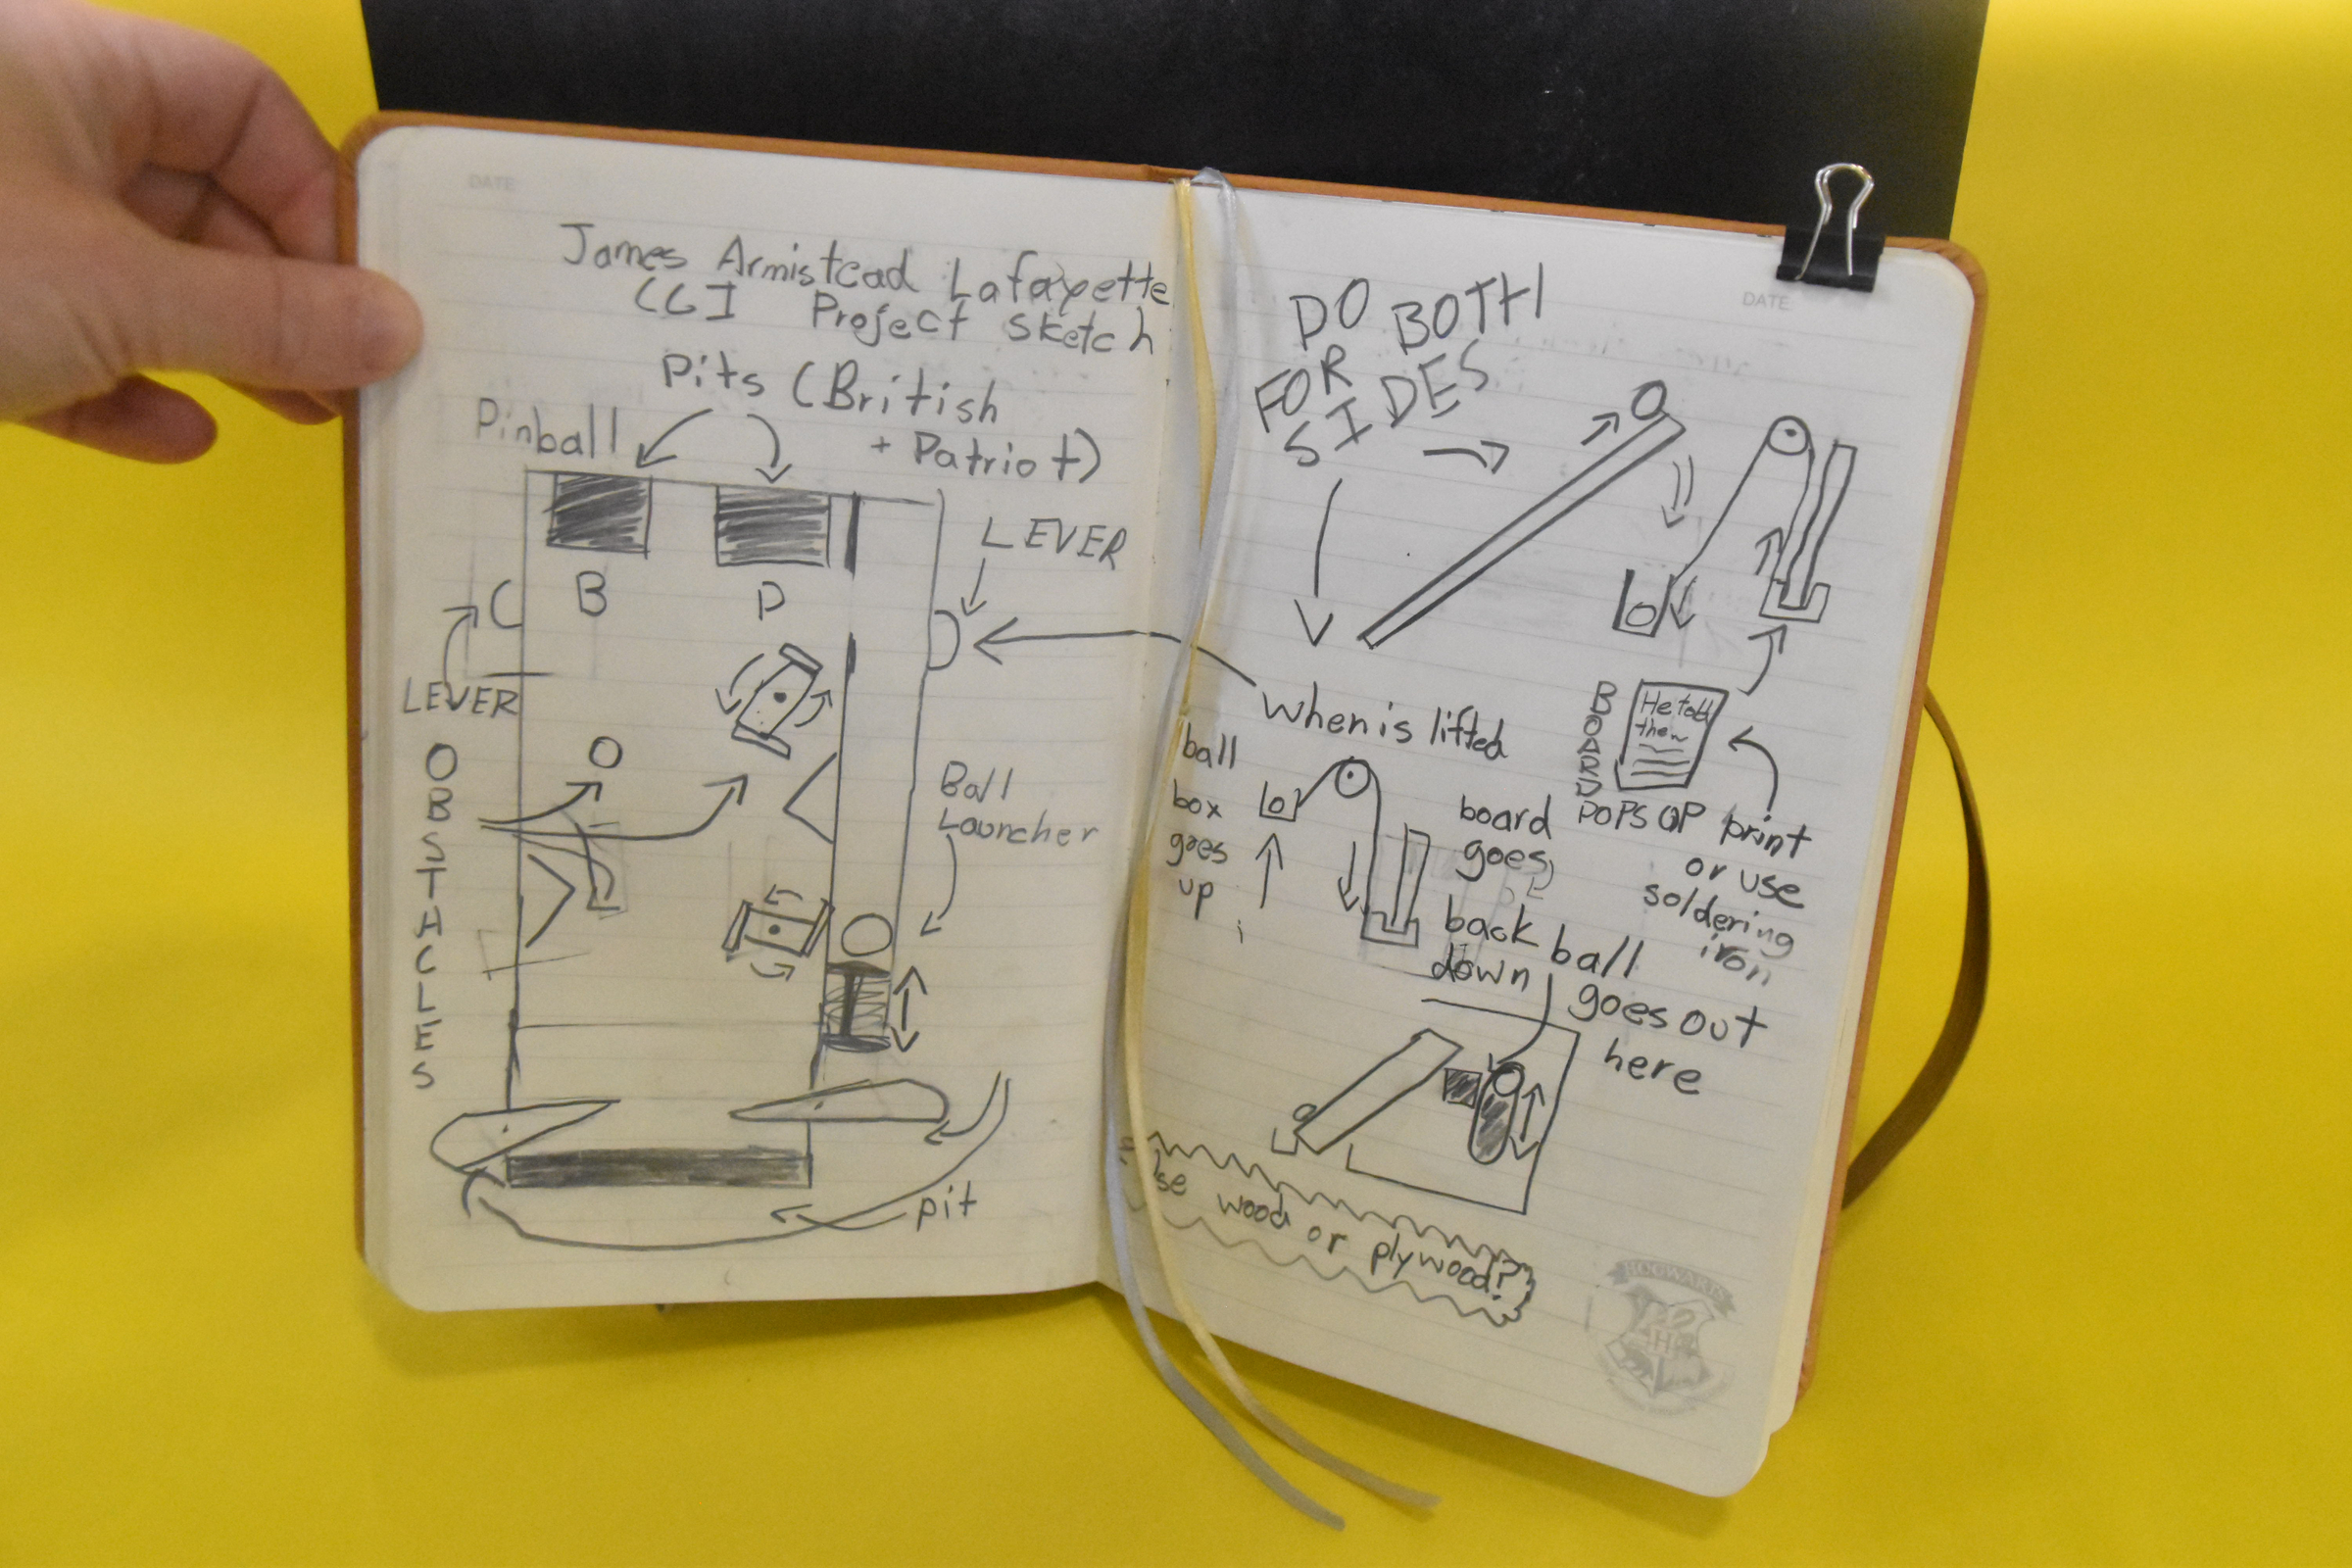 DATE
James Armistead Lafayette
CGI Project Sketch
Pits (British
+ Patriot)
Pinball
LEVER
B
P
LEVER
OBSTHCLES
Ball
Launcher
pit
DATE
DO BOTH
FOR
SIDES
When is lifted
ball
box
goes
up
board
goes
back
down
BOARD
He told
them
POPS UP
print
or use
soldering
iron
ball
goes out
here
use wood or plywood?
HOGWARTS
H